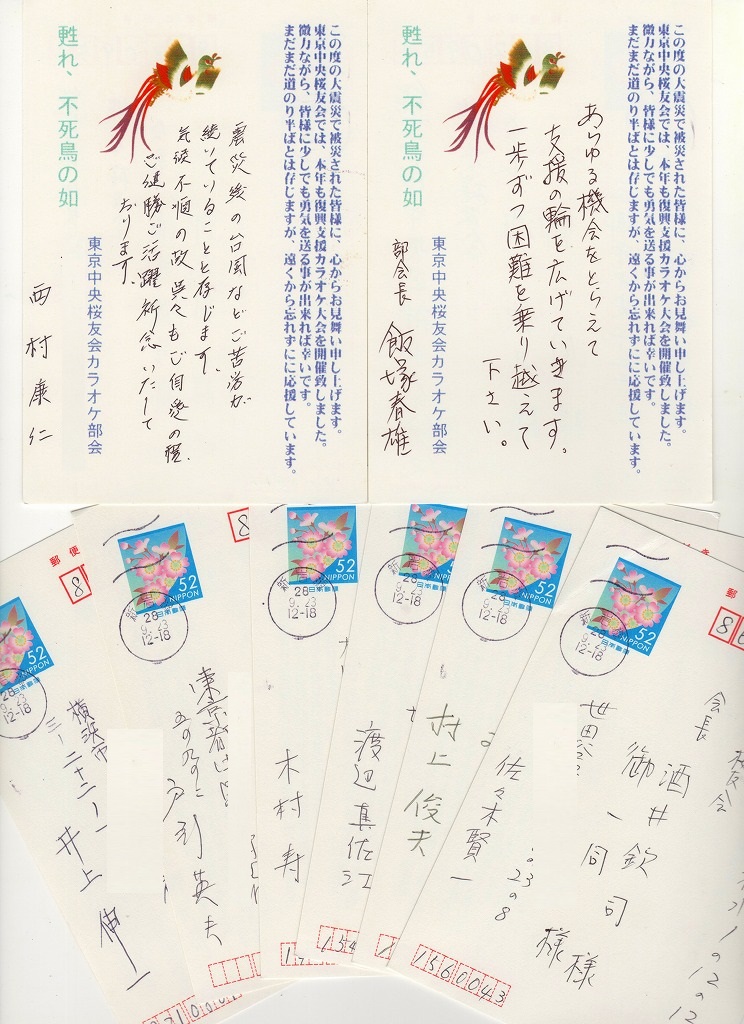 この度の大震災で被災された皆様に、心からお見舞い申し上げます。
東京中央桜友会では、本年も復興支援カラオケ大会を開催致しました。
微力ながら、皆様に少しでも勇気を送る事が出来れば幸いです。
まだまだ道のり半ばとは存じますが、遠くから忘れずにに応援しています。
あらゆる機会をとらえて
支援の輪を広げていきます。
一歩ずつ困難を乗り越えて
下さい。
東京中央桜友会カラオケ部会
部会長 飯塚春雄
甦れ、不死鳥の如
この度の大震災で被災された皆様に、心からお見舞い申し上げます。
東京中央桜友会では、本年も復興支援カラオケ大会を開催致しました。
微力ながら、皆様に少しでも勇気を送る事が出来れば幸いです。
まだまだ道のり半ばとは存じますが、遠くから忘れずにに応援しています。
震災後の台風などご苦労が
続いていることと存じます。
気候不順の故 呉々もご自愛の程、
ご健勝ご活躍祈念いたして
おります。
東京中央桜友会カラオケ部会
西村康仁
甦れ、不死鳥の如
郵
8
52
NIPPON
日本郵便
28
9.23
12-18
桜友会
会長
酒井欽司 様
御一同 様
世田谷
佐々木賢一
1560043
52
NIPPON
日本郵便
28
9.23
12-18
村上俊夫
28
9.23
12-18
渡辺真佐江
154
52
NIPPON
日本郵便
28
9.23
12-18
木村寿
8
52
NIPPON
日本郵便
28
9.23
12-18
東京都
英夫
郵便
8
52
NIPPON
日本郵便
28
9.23
12-18
横浜市
三ー二十二ー一
井上伸一